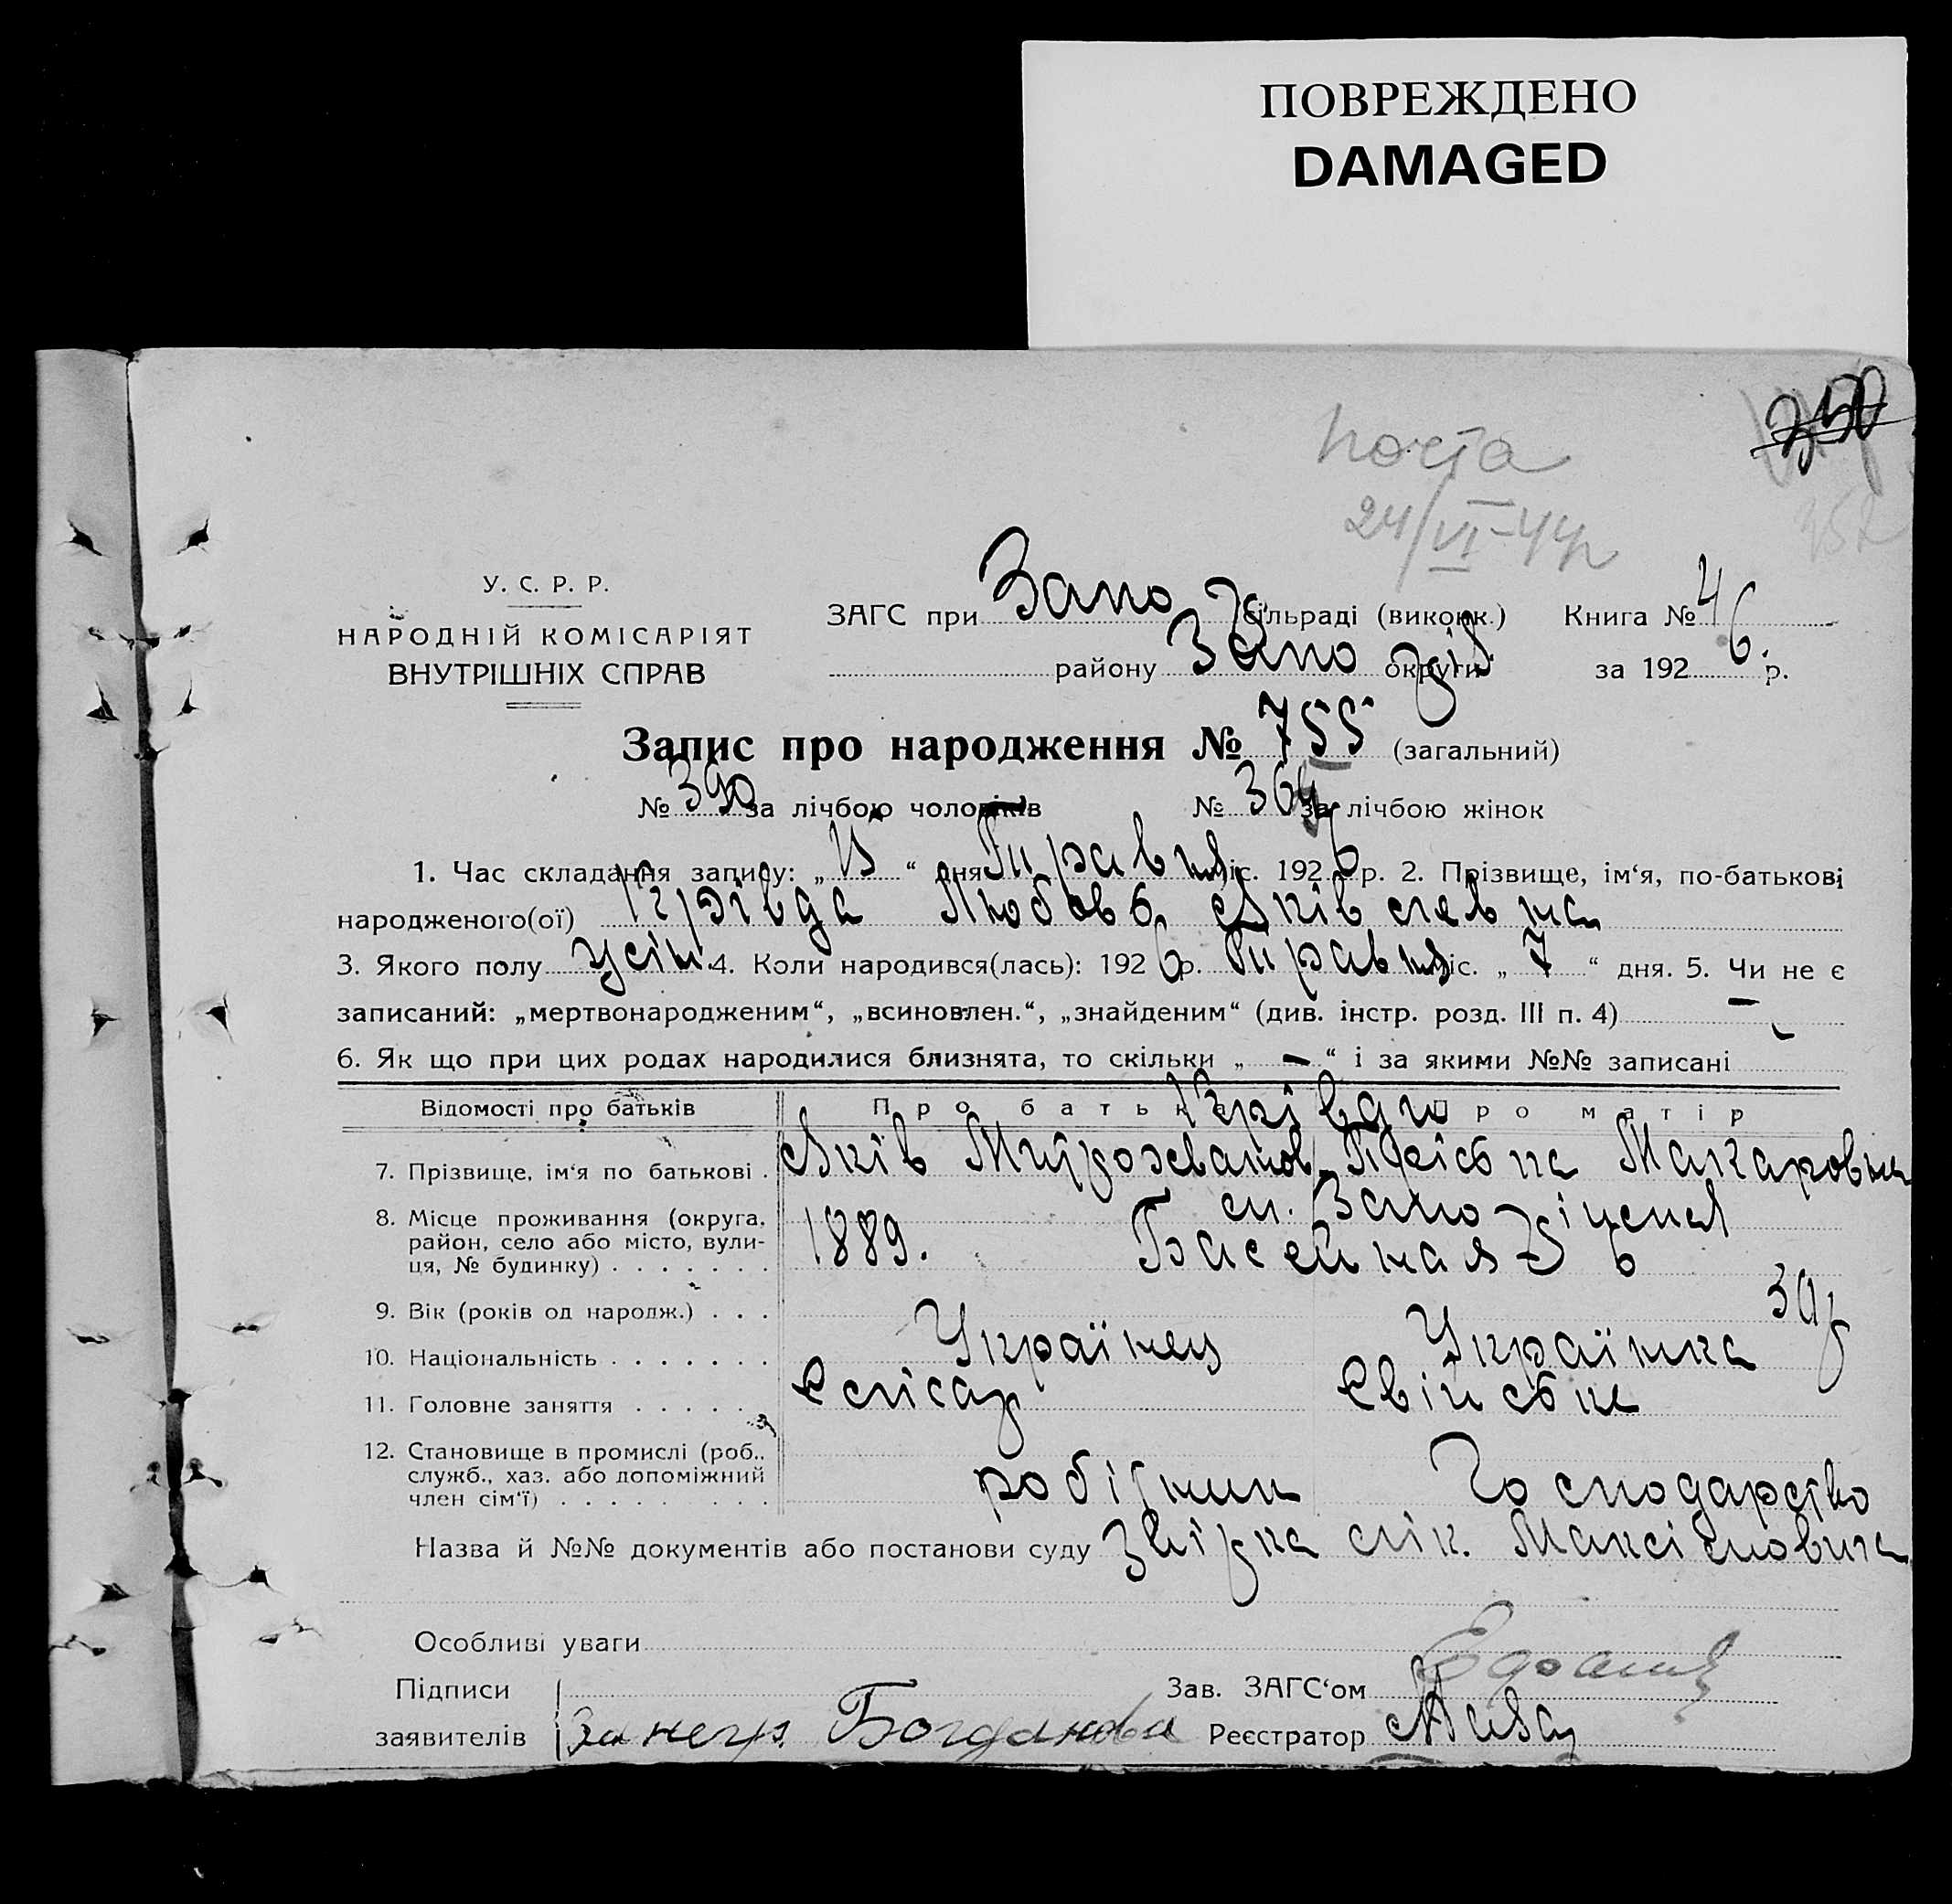 ПОВРЕЖДЕНО
DAMAGED
почта
24/VI-44р
У. С. Р. Р.
НАРОДНІЙ КОМІСАРІЯТ
ВНУТРІШНІХ СПРАВ
ЗАГС при Запо сільраді (виконк.) Книга № 4
району Запо округи за 1926 р.
Запис про народження № 755 (загальний)
№ 390 за лічбою чоловіків № 364 за лічбою жінок
1. Час складання запису: „13“ дня Травня міс. 1926 р. 2. Прізвище, ім‘я, по-батькові
народженого(ої) Крівда Любов Яківлевна
3. Якого полу жін. 4. Коли народився(лась): 1926 р. Травня міс. „7“ дня. 5. Чи не є
записаний: „мертвонародженим“, „всиновлен.“, „знайденим“ (див. інстр. розд. III п. 4) —
6. Як що при цих родах народилися близнята, то скільки „—“ і за якими №№ записані
Відомості про батьків Про батька Крівди Про матір
7. Прізвище, ім‘я по батькові . Яків Макаровна
8. Місце проживання (округа, район, село або місто, вулиця, № будинку) . . . . . . . 1889. Басейная 6
9. Вік (років од нарoдж.) . . . 39р
10. Національність . . . . . . . Українец Українка
11. Головне заняття . . . . . . Слісар
12. Становище в промислі (роб., служб., хаз. або допоміжний член сім‘ї) . . . . . . . . . робітник Господарство
Назва й №№ документів або постанови суду лік. Максімовича
Особливі уваги
Підписи Зав. ЗАГС‘ом
заявителів Богданова Реєстратор